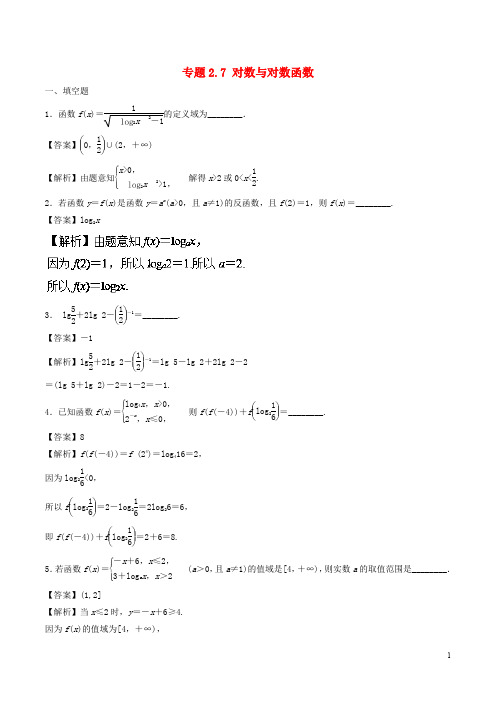 专题2.7 对数与对数函数
一、填空题
1．函数f(x)＝1/√((log₂x)²－1)的定义域为________．
【答案】(0，1/2)∪(2，＋∞)
【解析】由题意知{x>0，(log₂x)²>1，解得x>2或0<x<1/2.
2．若函数y＝f(x)是函数y＝aˣ(a>0，且a≠1)的反函数，且f(2)＝1，则f(x)＝________．
【答案】log₂x
【解析】由题意知f(x)＝logₐx，
因为f(2)＝1，所以logₐ2＝1.所以a＝2.
所以f(x)＝log₂x.
3． lg5/2＋2lg 2－(1/2)⁻¹＝________.
【答案】－1
【解析】lg5/2＋2lg 2－(1/2)⁻¹＝lg 5－lg 2＋2lg 2－2
＝(lg 5＋lg 2)－2＝1－2＝－1.
4．已知函数f(x)＝{log₄x，x>0，2⁻ˣ，x≤0，则f(f(－4))＋f(log₂1/6)＝________.
【答案】8
【解析】f(f(－4))＝f (2⁴)＝log₄16＝2，
因为log₂1/6<0，
所以f(log₂1/6)＝2－log₂1/6＝2log₂6＝6，
即f(f(－4))＋f(log₂1/6)＝2＋6＝8.
5．若函数f(x)＝{－x＋6，x≤2，3＋logₐx，x＞2 (a＞0，且a≠1)的值域是[4，＋∞)，则实数a的取值范围是________．
【答案】(1,2]
【解析】当x≤2时，y＝－x＋6≥4.
因为f(x)的值域为[4，＋∞)，
1